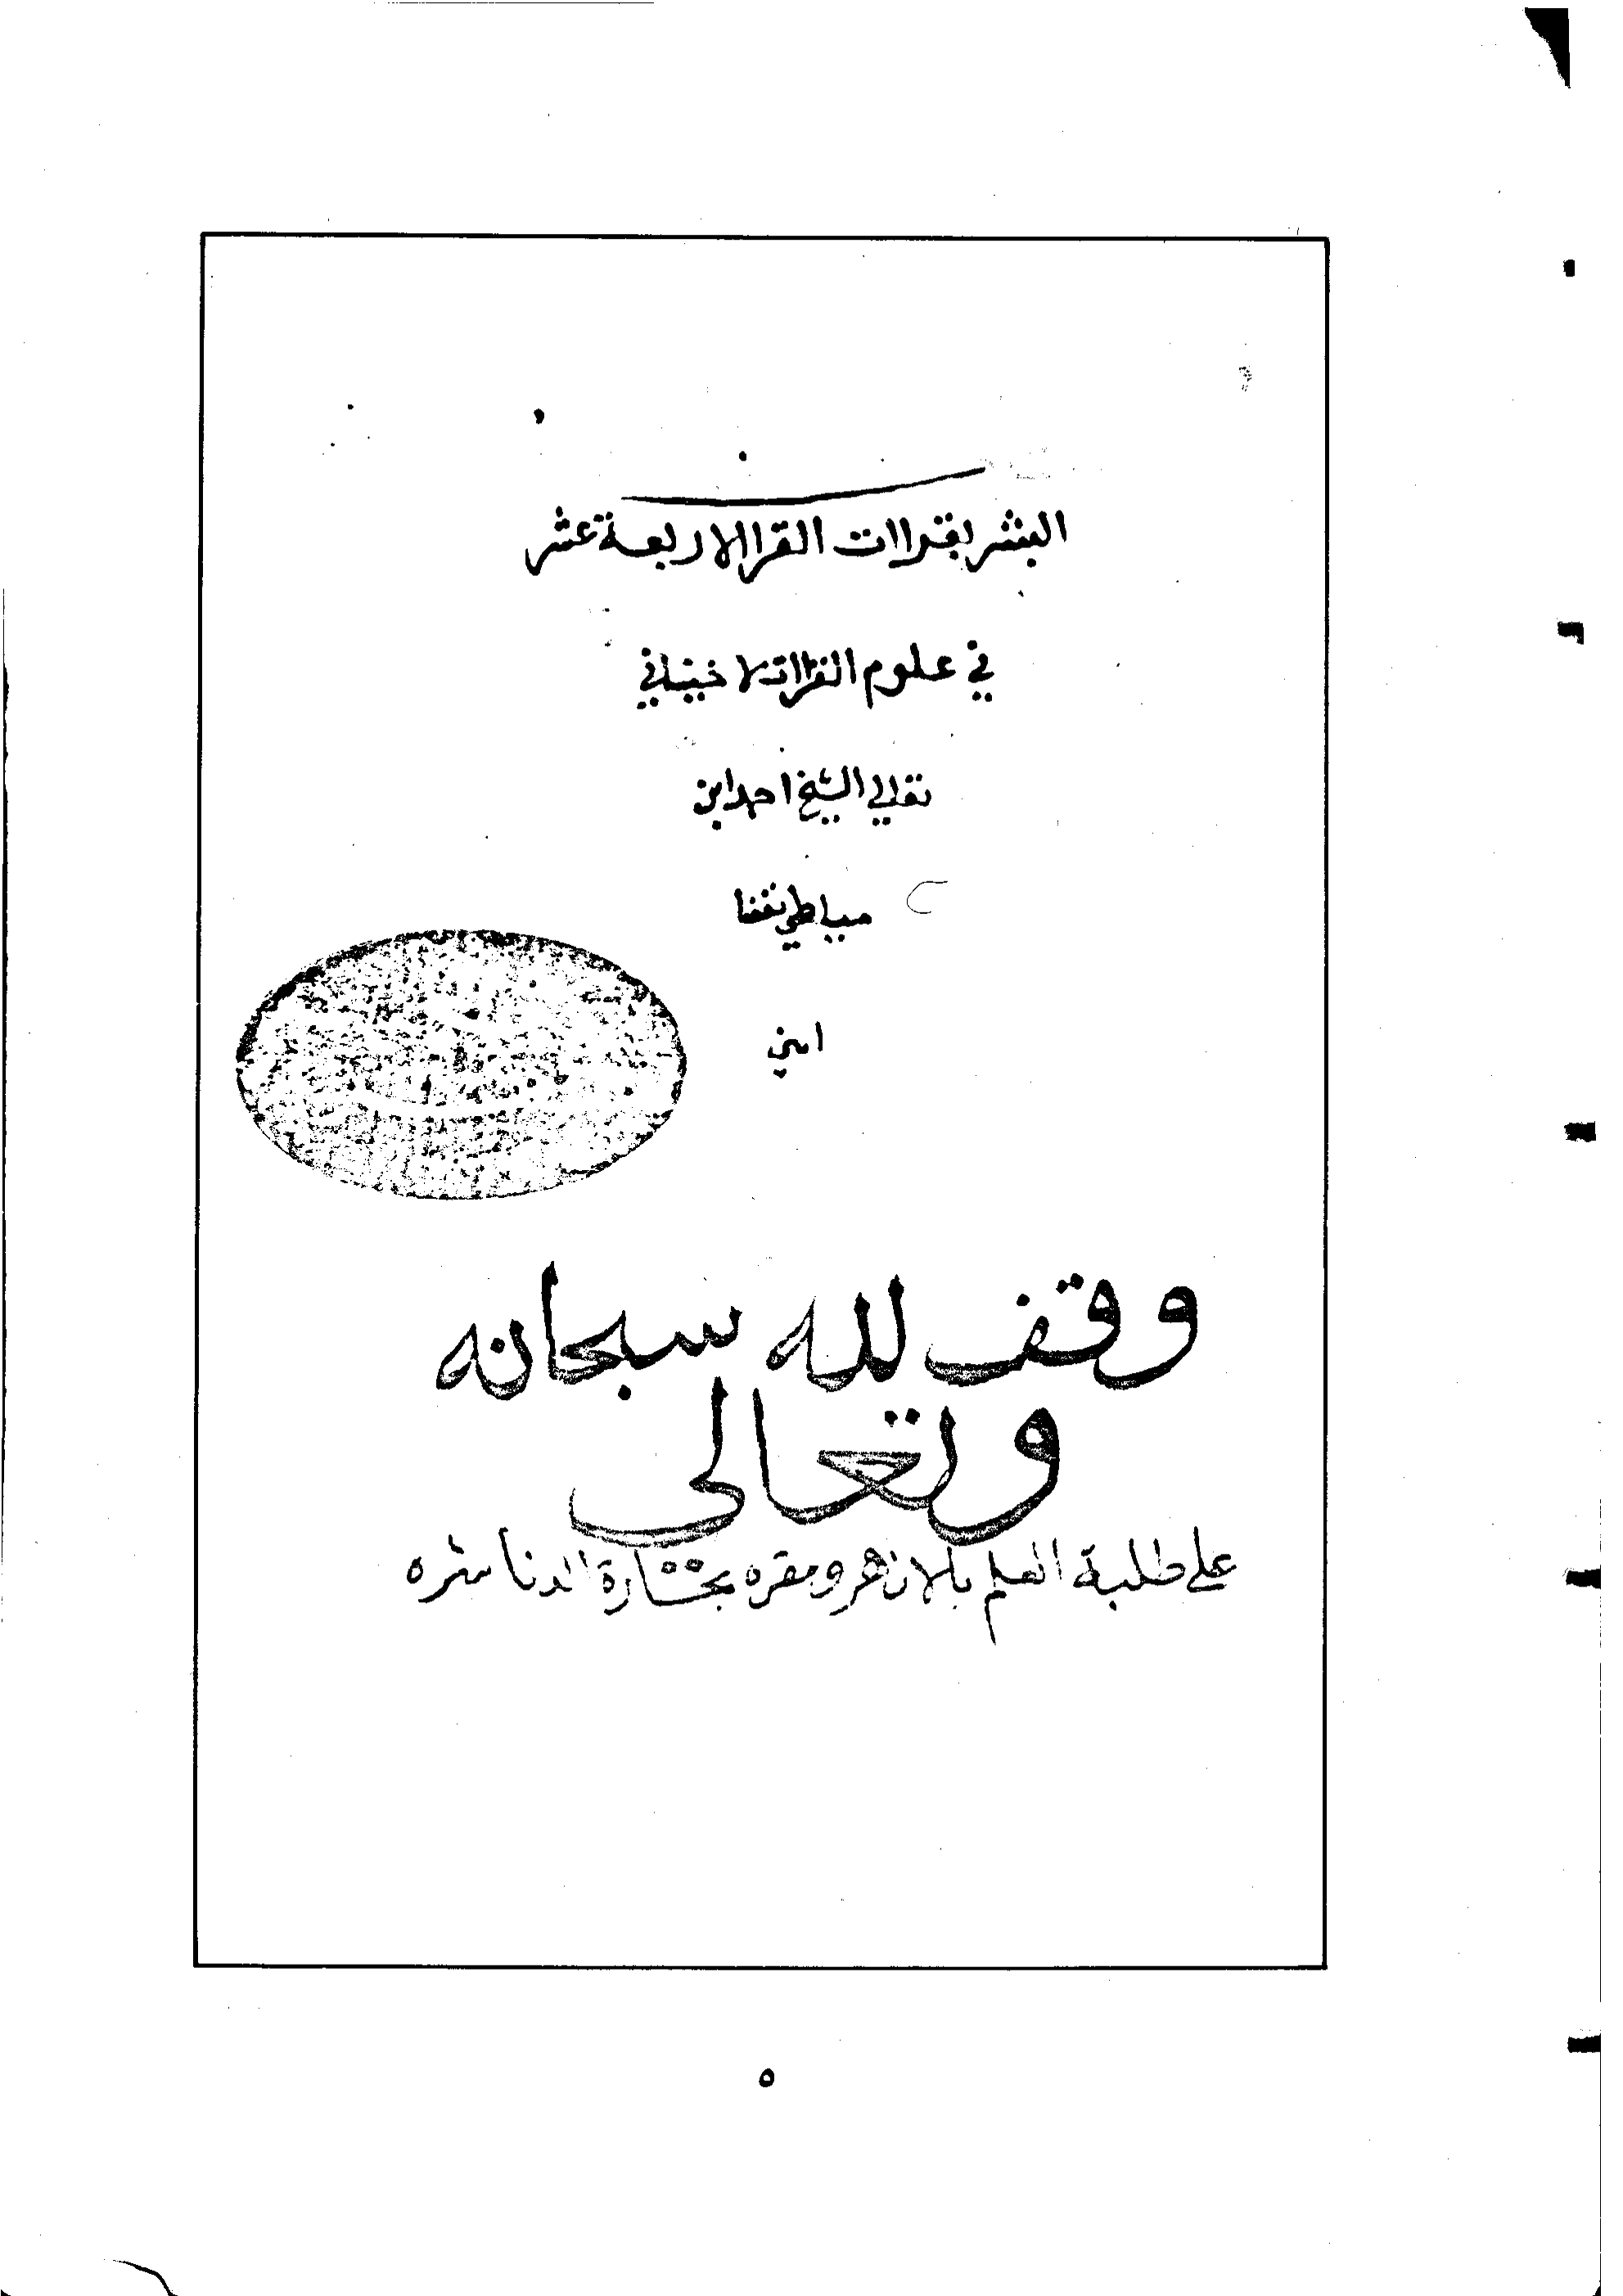 البشر بقراات القرا الاربعة عشر
في علوم القراات لا
تعالي الشيخ احمد ابن
مياطي نفعنا
امين
وقف لله سبحانه
وتعالى
على طلبة العلم بالازهر ومقره
٥